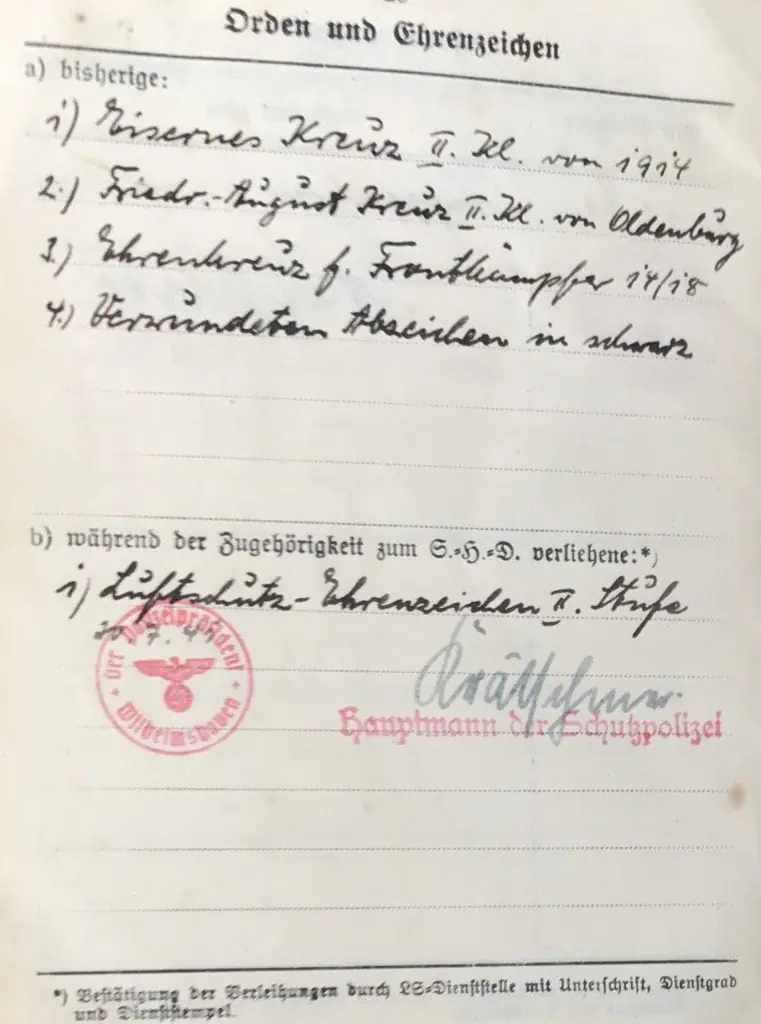 Orden und Ehrenzeichen
a) bisherige:
1) Eisernes Kreuz II. Kl. von 1914
2.) Friedr.-August Kreuz II. Kl. von Oldenburg
3.) Ehrenkreuz f. Frontkämpfer 14/18
4.) Verwundeten Abzeichen in schwarz
b) während der Zugehörigkeit zum S.=H.=D. verliehene:*)
1) Luftschutz-Ehrenzeichen II. Stufe
Der Polizeipräsident
Wilhelmshaven
Hauptmann der Schutzpolizei
*) Bestätigung der Verleihungen durch LS=Dienststelle mit Unterschrift, Dienstgrad
und Dienststempel.